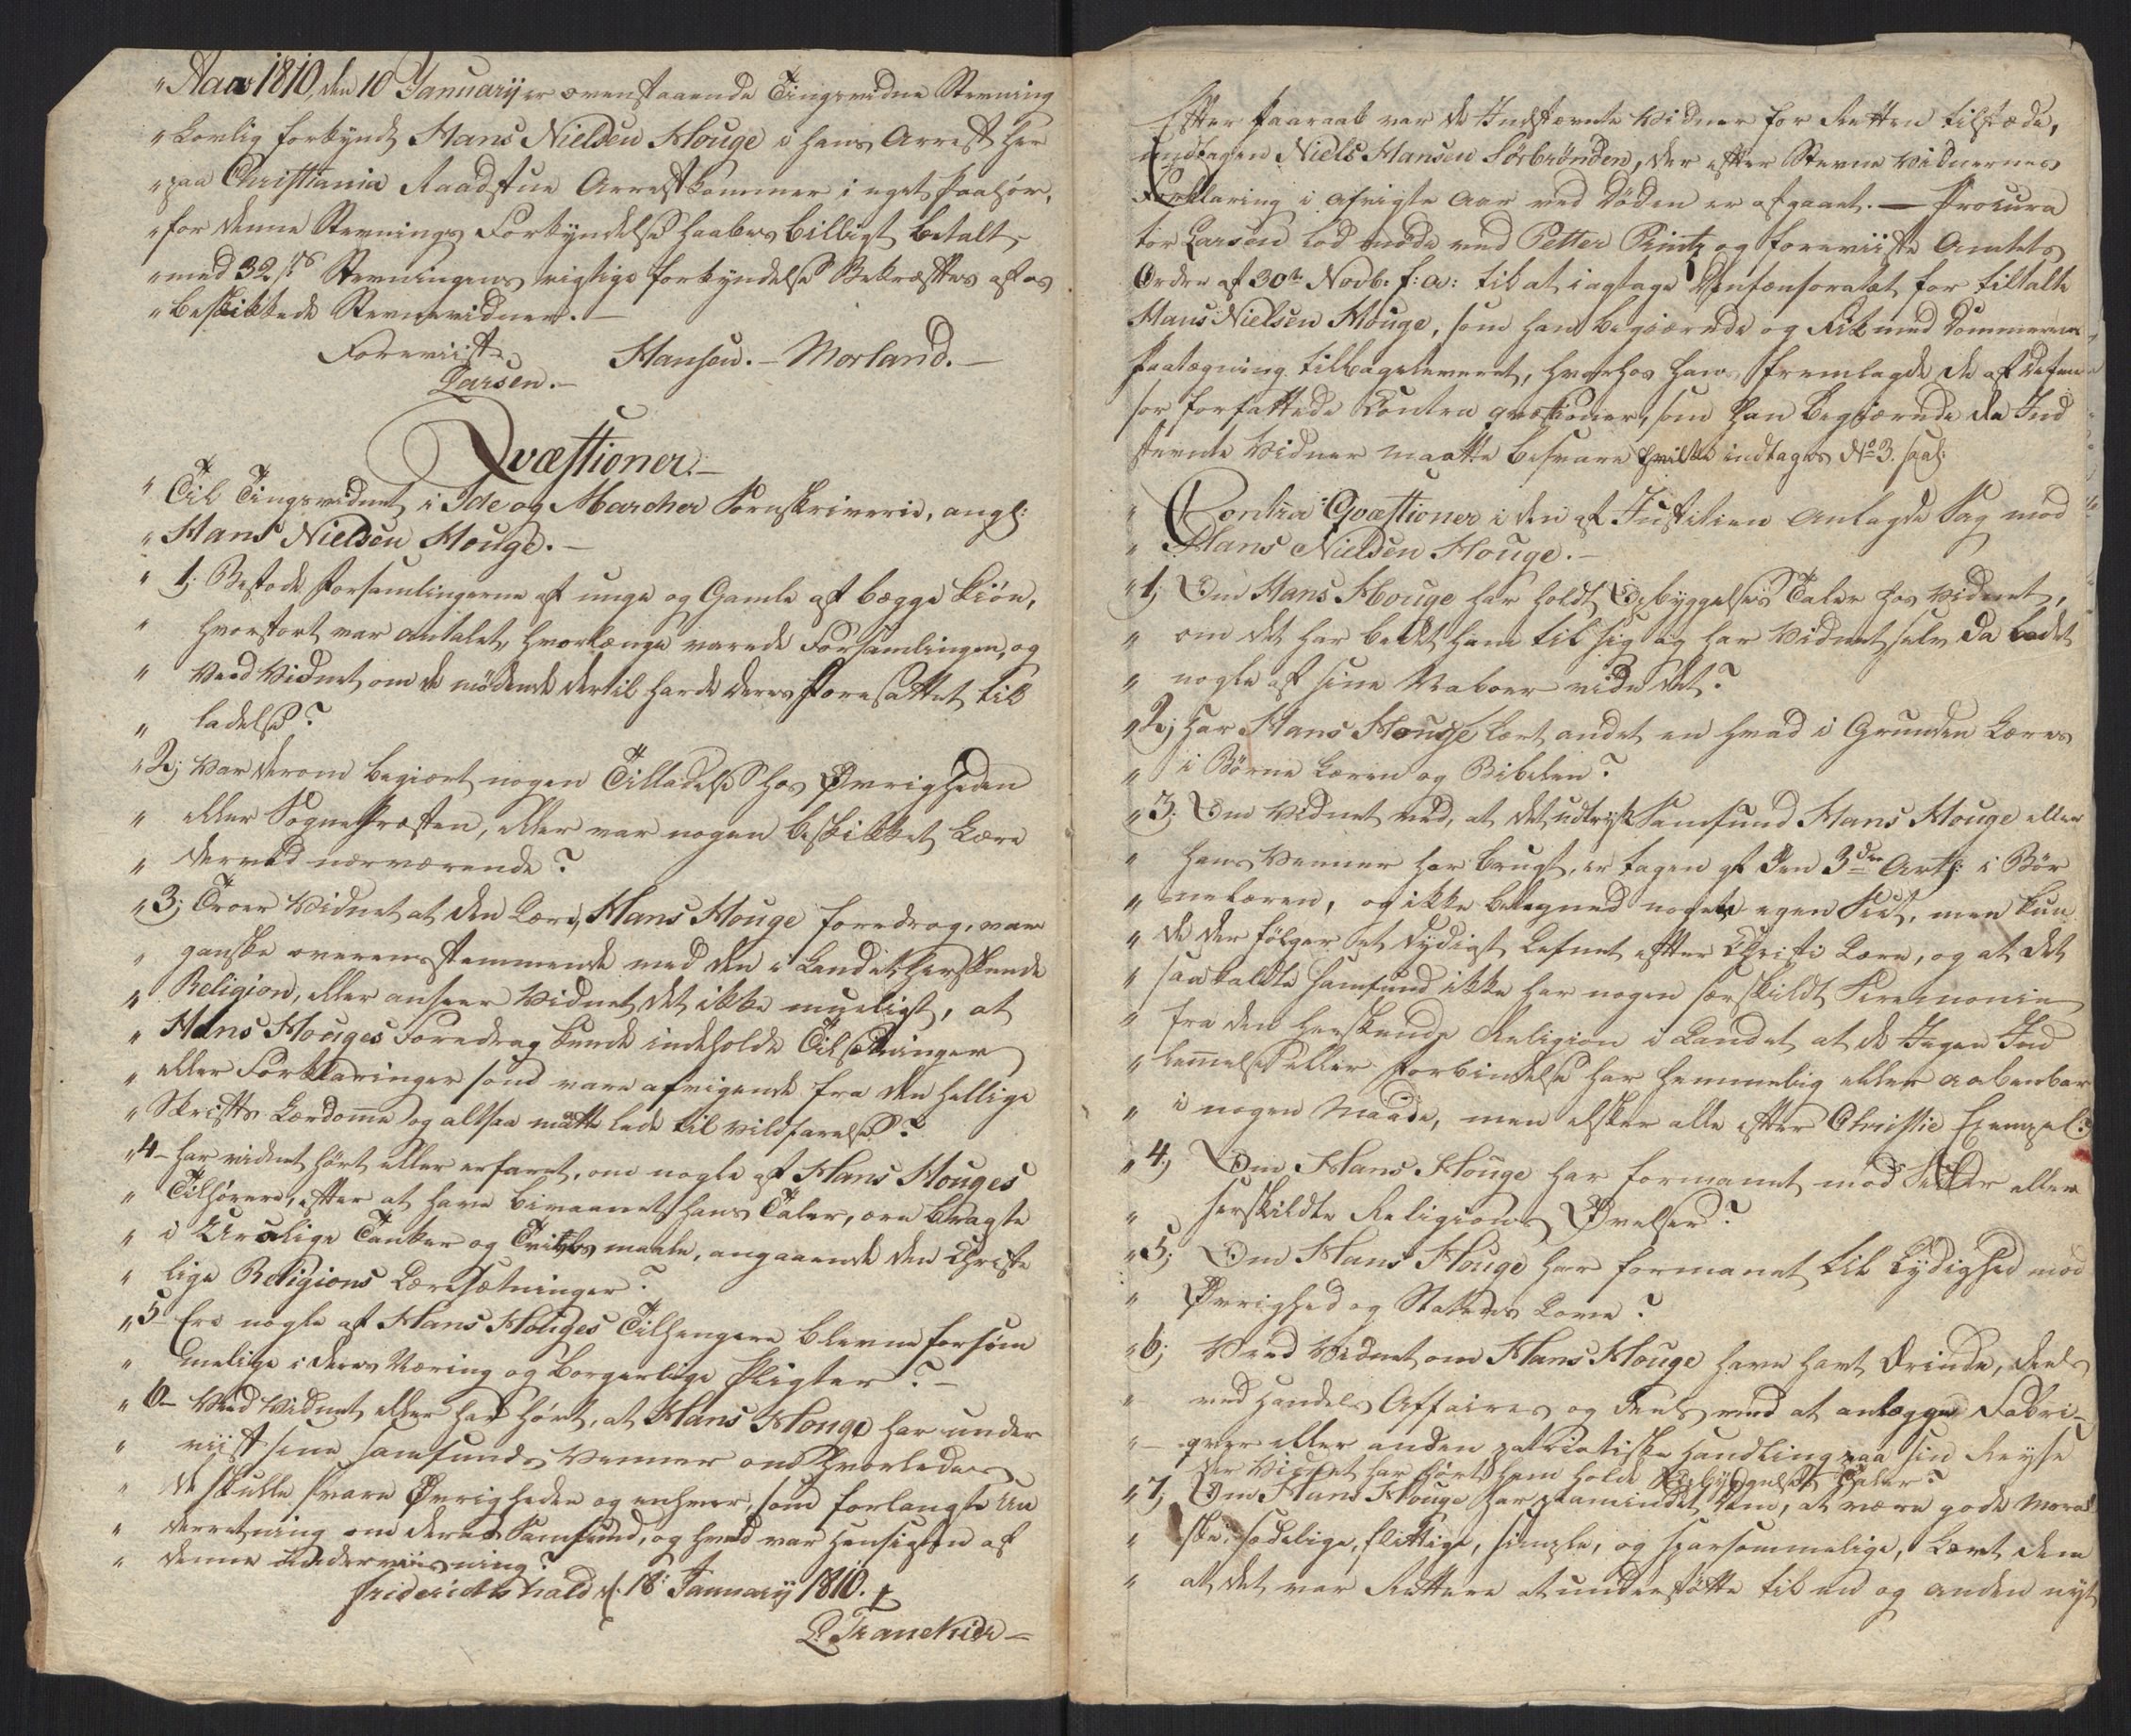 "Aaar 1810, den 10 Januarij er ovenstaaende Tingsvidne Stevning
"Lovlig forkyndt Hans Nielsen Houge i hans Arrest her
"paa Christiania Raadstue Arrestkammer i eget Paahør,
"for denne Stevnings Forkyndelse haabes billigt betalt
"med 32 s. Stevningens rigtige forkyndelse Bekræftes af os
"beskikkede Stevnevidner. —
Foreviist
Larsen. — Hansen. — Morland. —
Qvæstioner. —
" Til Tingsvidnet i Ide og Marcher Sornskriverie, angl:
" Hans Nielsen Houge. —
" 1; Bestode Forsamlingerne af unge og Gamle af begge Kiøn,
" hvorstort var antalet, hvorlænge varede Forsamlingen, og
" Veed Vidnet, om de mødende dertil havde deres foresattes til
" ladelse?
" 2; Var derom begiært nogen Tilladelse hos Øvrigheden
" eller Sognepræsten, eller var nogen beskikket Lære
" derved nærværende?
" 3; Troer Vidnet at den Lære, Hans Houge foredrog, var
" ganske overensstemmende med den i Landet herskende
" Religion, eller anseer Vidnet det ikke mueligt, at
" Hans Houges Foredrag kunde indeholde Tilsætninger
" eller Forklaringer som vare afvigende fra den hellige
" Skrifts Lærdomme og altsaa maatte lede til vildfarelse?
" 4 — har vidnet hørt eller erfaret, om nogle af Hans Houges
" Tilhørere, efter at have bivaanet hans Taler, ere bragte
" i Urolige Tanker og Tvivlsmaale, angaaende den Christe
" lige Religions Læresætninger?
" 5 Ere nogle af Hans Houges Tilhengere blevne forsøm
" melige i deres Næring og borgerlige Pligter? —
" 6 — Veed Vidnet eller har hørt, at Hans Houge har under
" viist sine Samfunds Venner om hvorledes
" de skulle svare Øvrigheden og enhver, som forlangte Un
" derretning om deres Samfund, og hvad var hensigten af
" denne underviisning?
Friderichshald d. 18: Januarij 1810.
Efter Paaraab var de Indstævnte Vidner for Retten tilstæde,
undtagen Niels Hansen Sørbrønden, der efter Stevne Vidnernes
Forklaring i afvigte Aar ved Døden er afgaaet. — Procura
tor Larsen lod møde ved Petter Pintz og foreviiste Amtets
Ordre af 30te Novbr. f: a: til at iagtage Defensoratet for tiltalte
Hans Nielsen Houge, som han begiærede og Fik med Dommerens
Paategning tilbageleveret, hvorhos han fremlagde de af Defen
sor forfattede Contra qvæstioner, som han begiærede de Ind
stevnte Vidner maatte besvare hvilke indtages No 3. saal:
" Contra Qvæstioner i den af Justitien anlagde Sag mod
" Hans Nielsen Houge. —
" 1; Om Hans Houge har holdt Opbyggelses Taler hos Vidnet,
" om det har bedet ham til sig og har Vidnet selv da ladet
" nogle af sine Naboer vide det?
" 2; Har Hans Houge lært andet en hvad i Grunden Læres
" i Børne Læren og Bibelen?
" 3. Om Vidnet ved, at det udtryk Samfund Hans Houge eller
" hans Venner har brugt, er tagen af den 3die Artl: i Bør
" nelæren, og ikke betegned nogen egen Sect, men kun
" de der følger et dydigt Lefnet efter Christi Lære, og at det
" saakaldte Samfund ikke har nogen særskildt Ceremonie
" fra den herskende Religion i Landet, at de Ingen Ind
" lemmelse eller Forbindelse har hemmelig eller aabenbar
" i nogen Maade, men elsker alle efter Christie Exempel?
" 4; Om Hans Houge har formanet mod Secter eller
" særskildte Religions Øvelser?
" 5; Om Hans Houge har formanet til Lydighed mod
" Øvrighed og Statens Love?
" 6; Veed Vidnet om Hans Houge have havt Ærinde, deels
" med Handels Affairer og deels med at anlægge Fabri-
" qver eller anden patriotiske Handling paa sin Reyse
der Vidnet har hørt ham holde Opbyggelses Taler?
" 7; Om Hans Houge har paamindet dem, at være gode Moral
" ske, sædelige, flittige, simple, og sparsommelige, Lært dem
" at det var Rettere at understøtte til en og anden nyt